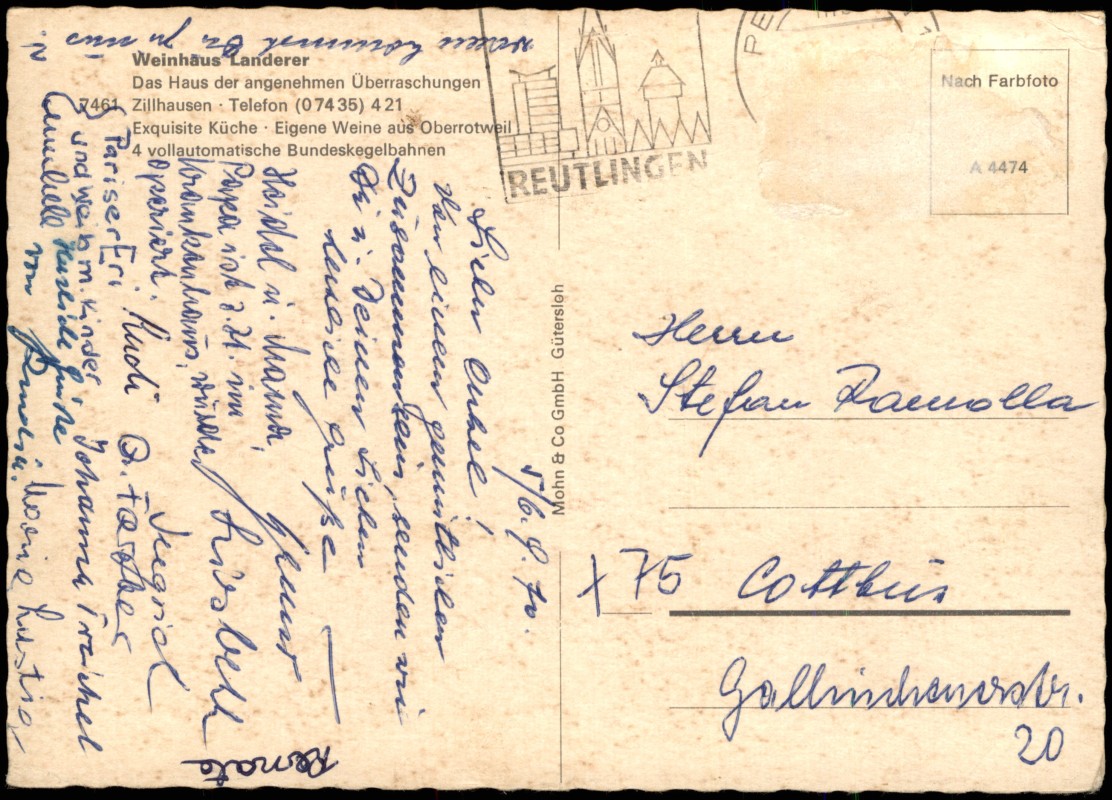 Weinhaus Landerer
Das Haus der angenehmen Überraschungen
7461 Zillhausen · Telefon (0 74 35) 4 21
Exquisite Küche · Eigene Weine aus Oberrotweil
4 vollautomatische Bundeskegelbahnen
REUTLINGEN
Nach Farbfoto
A 4474
Mohn & Co GmbH Gütersloh
5/6. 9. 70.
Lieber Onkel!
Von einem gemütlichen
Zusammensein, senden wir
Dir u. Deinen Lieben
unsere Grüße
Heidel u. Hanna,
Papa ist z. Zt. im
Krankenhaus, wurde
operiert.
wann kommst Du zu uns
Lisbeth
Ingrid
Renate
Pariser Eri
Rudi
und Weib m. Kinder
Johanna Treichel
Herzliche Grüße
von
Herrn
Stefan Ramolla
x 75 Cottbus
Gallinchenerstr.
20